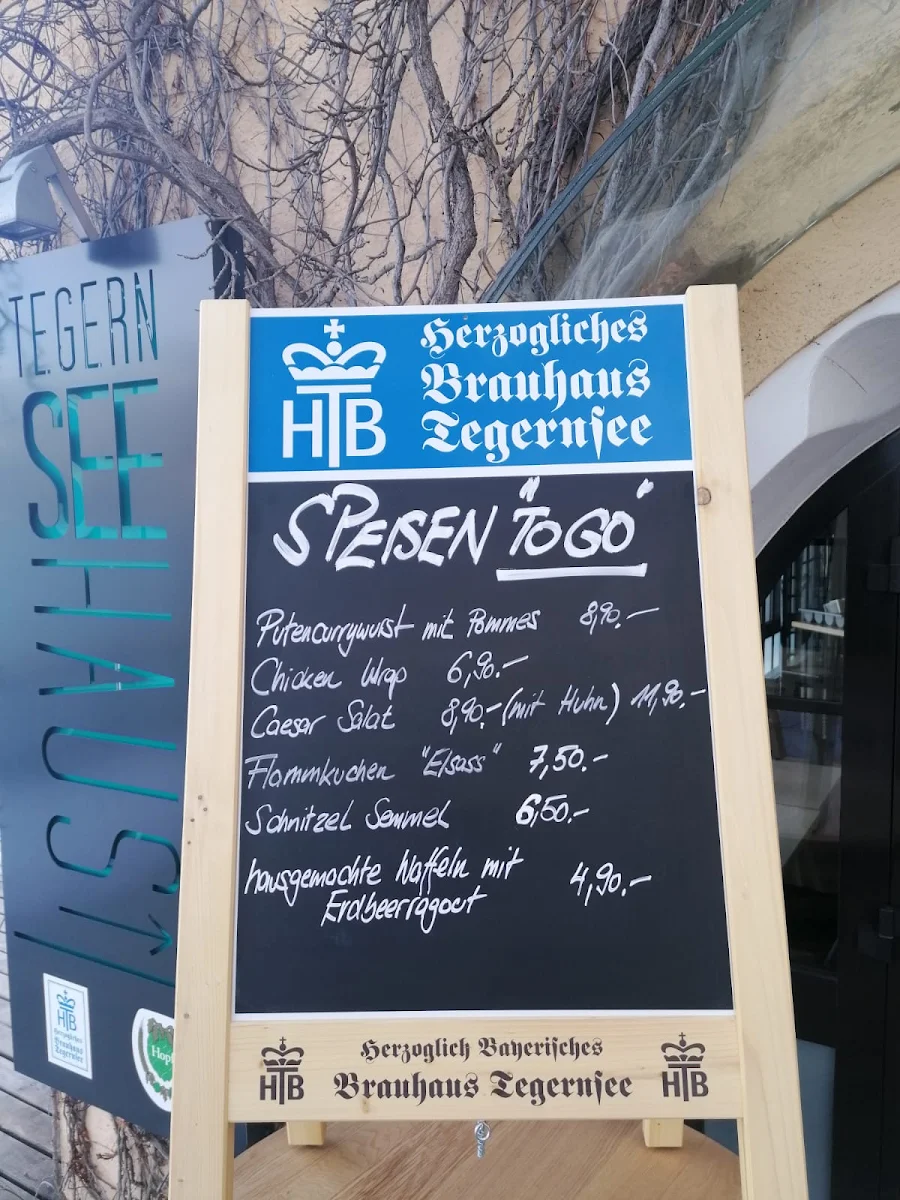 TEGERN
SEE
HAUSL
HTB
Herzogliches
Brauhaus
Tegernsee
SPEISEN "TO GO"
Putencurrywurst mit Pommes 8,90.-
Chicken Wrap 6,90.-
Caesar Salat 8,90.- (mit Huhn) 11,90.-
Flammkuchen "Elsass" 7,50.-
Schnitzel Semmel 6,50.-
hausgemachte Waffeln mit
Erdbeerragout 4,90.-
HTB
Herzogliches
Brauhaus
Tegernsee
HTB
Herzoglich Bayerisches
Brauhaus Tegernsee
HTB